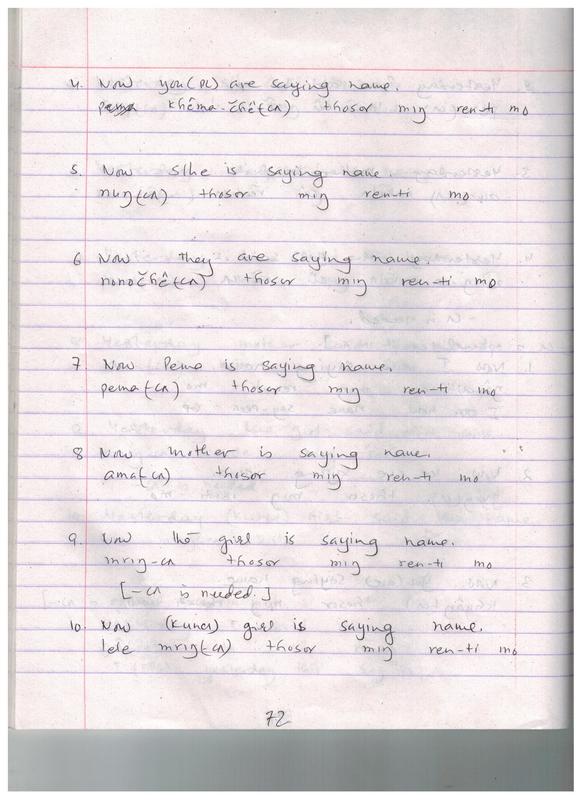 4. Now you(PL) are saying name.
khêma-čhê(ʌ) thosor miŋ ren-ti mo
5. Now s/he is saying name.
nuŋ(ʌ) thosor miŋ ren-ti mo
6 Now they are saying name.
nonočhê(ʌ) thosor miŋ ren-ti mo
7. Now Pema is saying name.
pema(ʌ) thosor miŋ ren-ti mo
8 Now mother is saying name.
ama(ʌ) thosor miŋ ren-ti mo
9. Now the girl is saying name.
mriŋ-ʌ thosor miŋ ren-ti mo
[-ʌ is needed.]
10. Now girl is saying name.
lele mriŋ(ʌ) thosor miŋ ren-ti mo
72